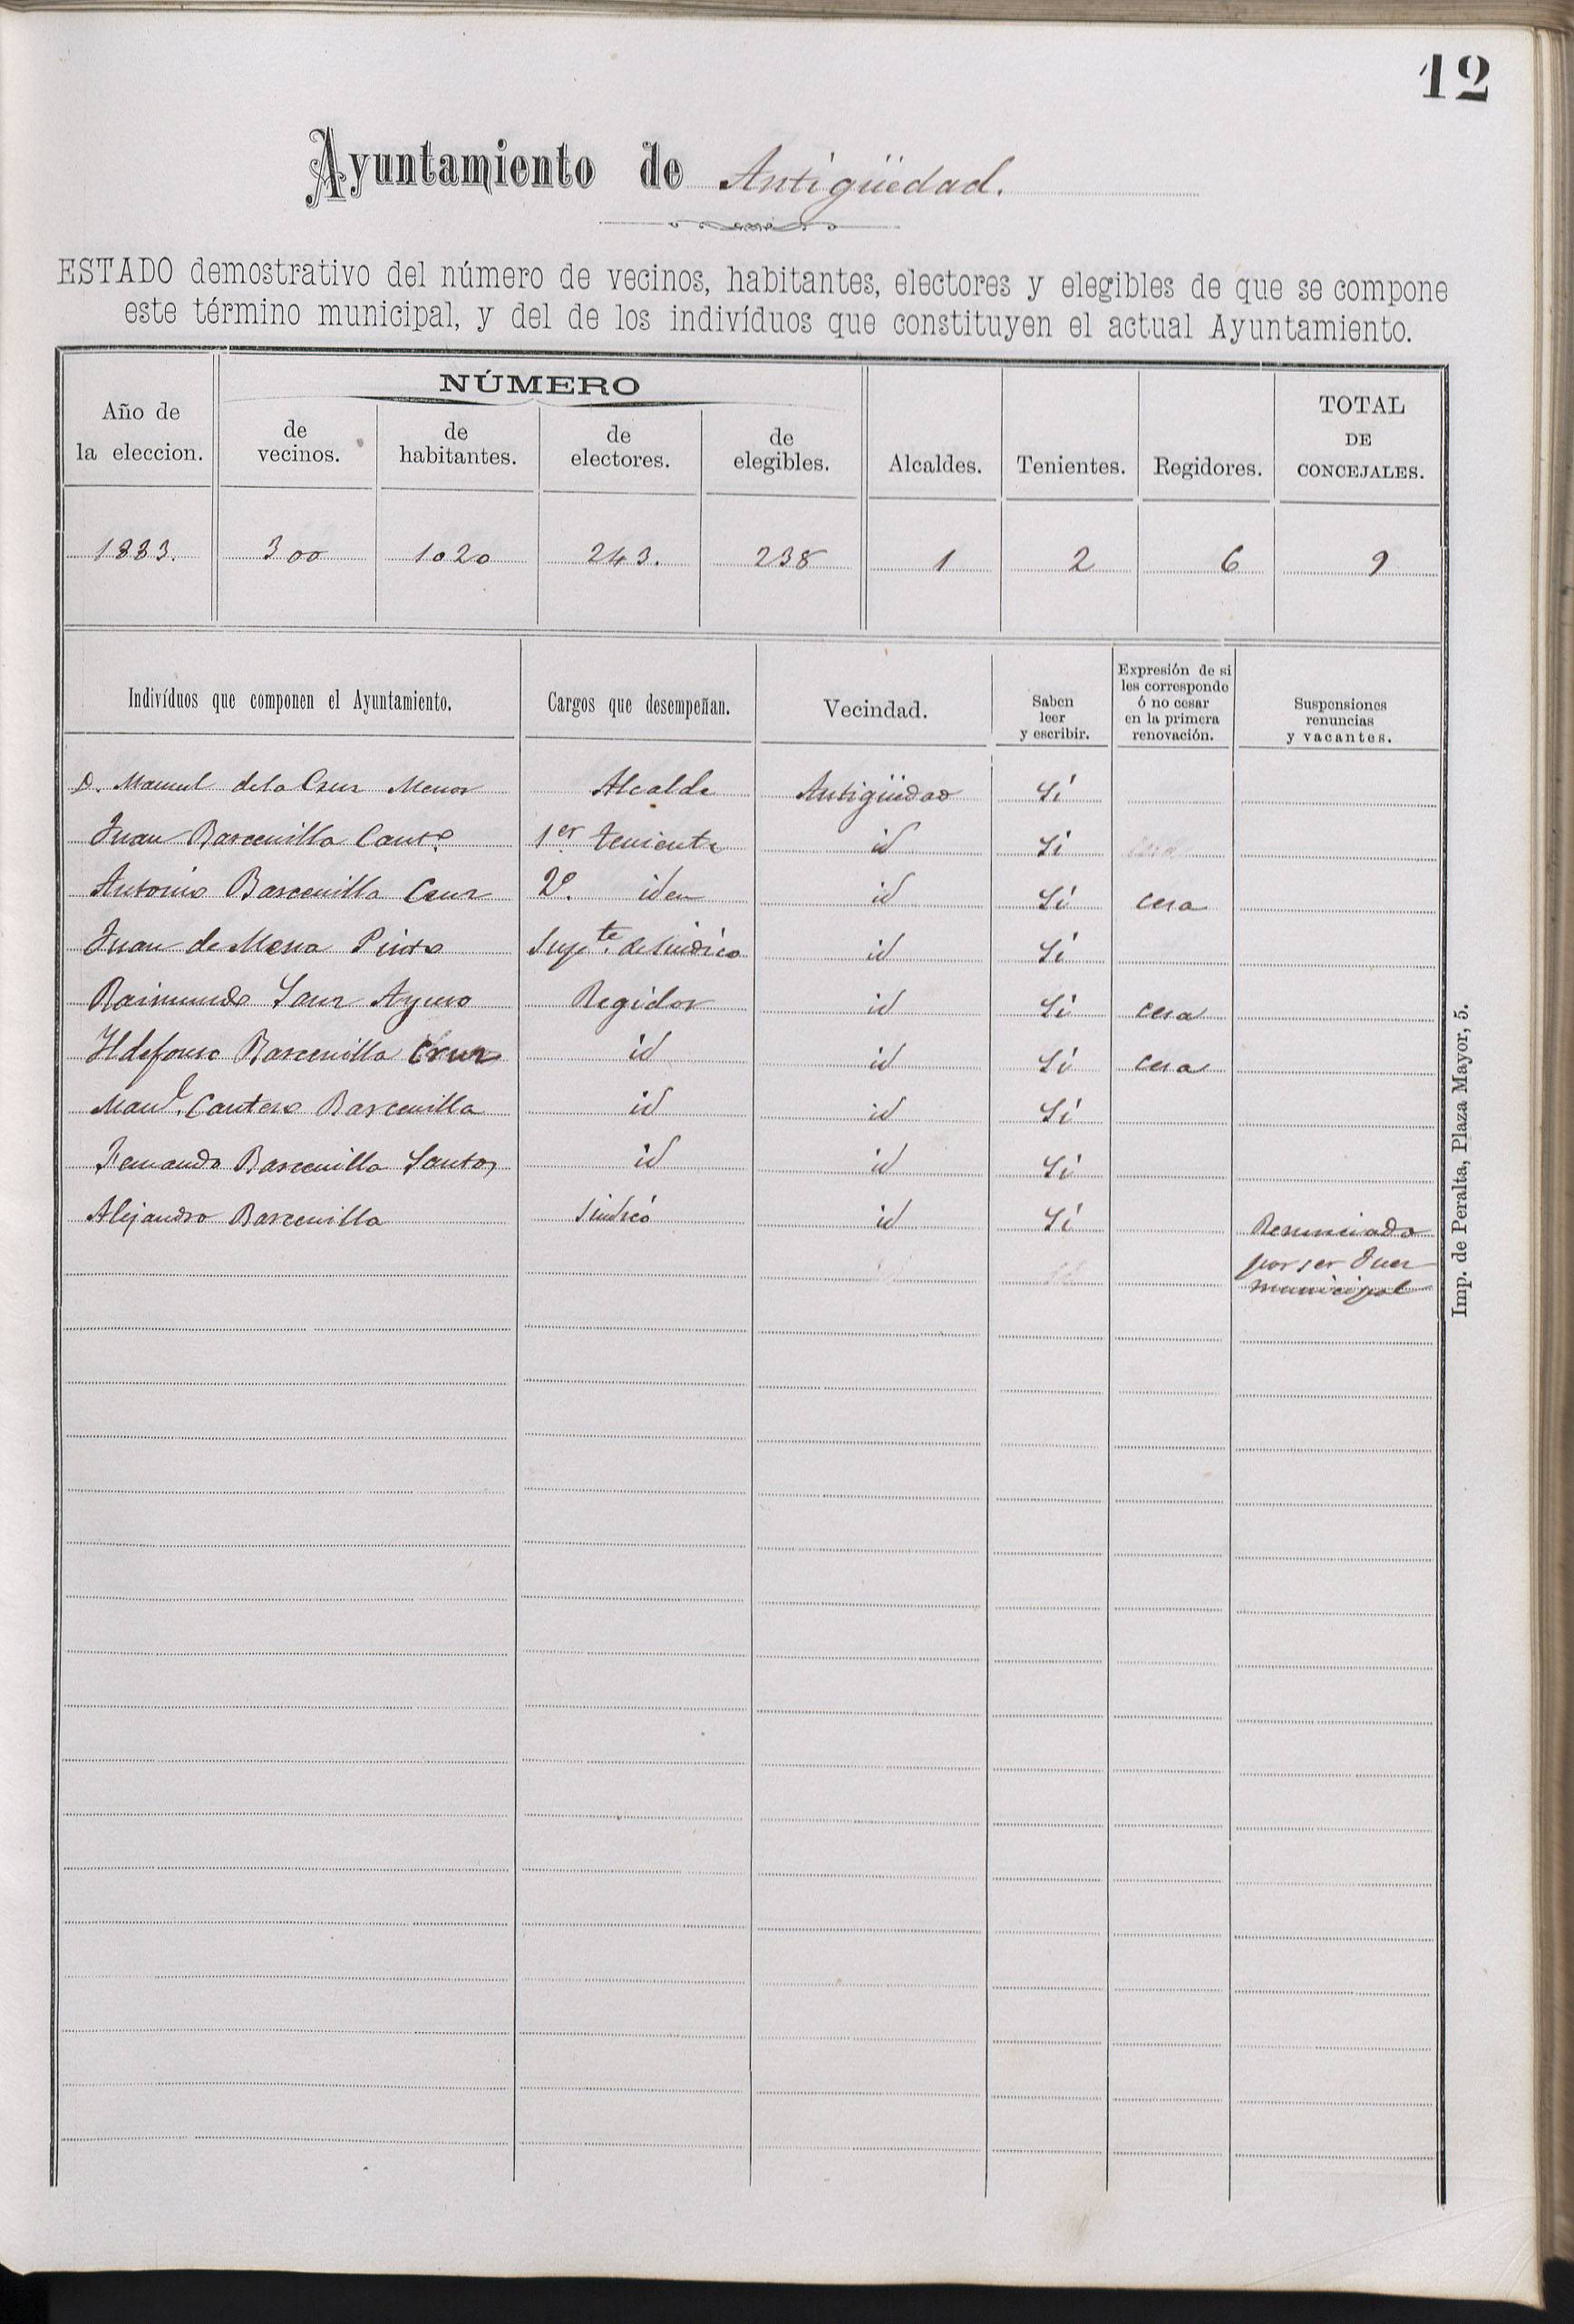 12
Ayuntamiento de Antigüedad.
ESTADO demostrativo del número de vecinos, habitantes, electores y elegibles de que se compone
este término municipal, y del de los indivíduos que constituyen el actual Ayuntamiento.
Año de la eleccion. NÚMERO de vecinos. de habitantes. de electores. de elegibles. Alcaldes. Tenientes. Regidores. TOTAL DE CONCEJALES.
1883. 300 1020 243. 238 1 2 6 9
Indivíduos que componen el Ayuntamiento. Cargos que desempeñan. Vecindad. Saben leer y escribir. Expresión de si les corresponde ó no cesar en la primera renovación. Suspensiones renuncias y vacantes.
D. Manuel de la Cruz Menor Alcalde Antigüedad Sí
Juan Barcenilla Cant.º 1.er teniente id Sí
Antonio Barcenilla Cruz 2º. idem id Sí cesa
Juan de Mena Pinto Sup.te de Sindico id Sí
Raimundo Sanz Ayuso Regidor id Sí cesa
Ildefonso Barcenilla Cruz id id Sí cesa
Man.l Cantero Barcenilla id id Sí
Fernando Barcenilla Santos id id Sí
Alejandro Barcenilla Sindico id Sí Renunciado
por ser Juez
municipal
Imp. de Peralta, Plaza Mayor, 5.